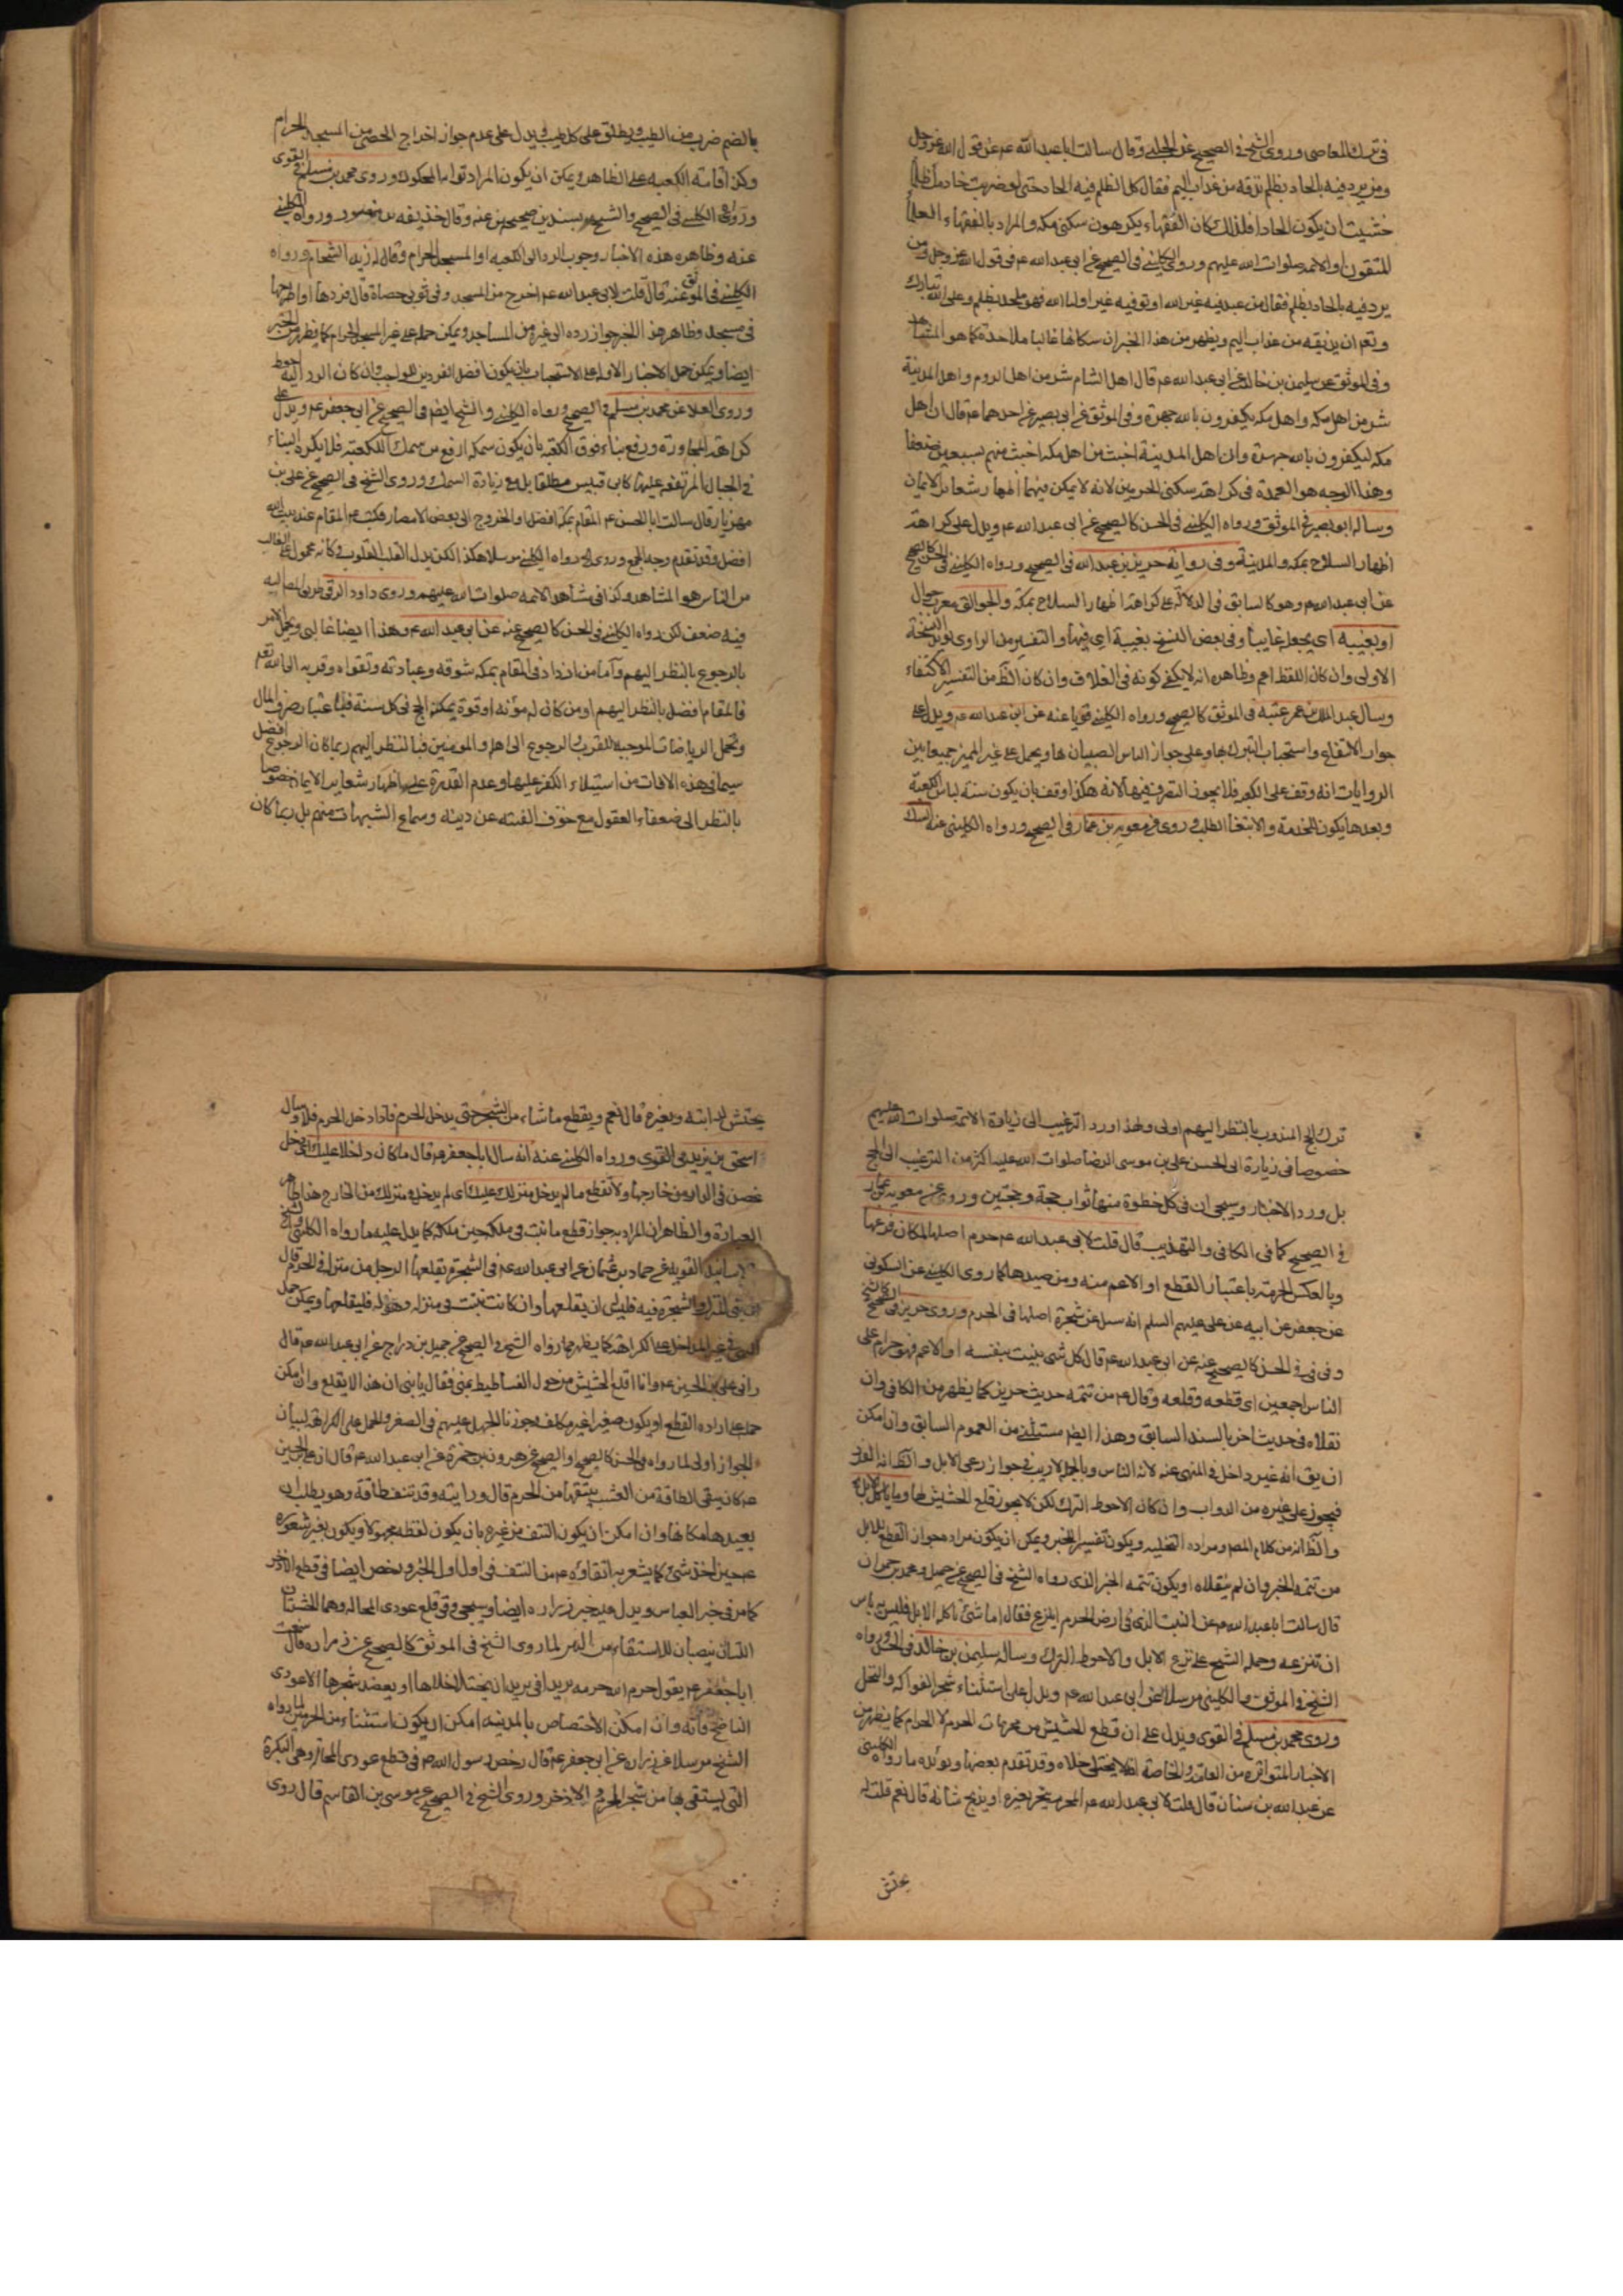 في ترك المعاصي وروى الشيخ في الصحيح عن الحلبي قال سالت ابا عبد الله عم عن قول الله عز وجل
ومن يرد فيه بالحاد بظلم نذقه من عذاب اليم فقال كل الظلم فيه الحاد حتى لو ضربت خادمك ظلما
خشيت ان يكون الحادا فلذلك كان الفقهاء يكرهون سكنى مكه والمراد بالفقهاء العلماء
المتقون او الائمه صلوات الله عليهم وروى الكليني في الصحيح عن ابي عبد الله عم في قول الله عز وجل ومن
يرد فيه بالحاد بظلم فقال من عبد فيه غير الله او تولى فيه غير اولياء الله فهو ملحد بظلم وعلى الله تبارك
وتعم ان يذيقه من عذاب اليم ويظهر من هذا الخبر ان سكانها غالبا ملاحدة كما هو المشاهد
وفي الموثق عن سليمن بن خالد عن ابي عبد الله عم قال اهل الشام شر من اهل الروم واهل المدينة
شر من اهل مكه واهل مكه يكفرون بالله جهرة وفي الموثق عن ابي بصير عن احدهما عم قال ان اهل
مكه ليكفرون بالله جهرة وان اهل المدينة اخبث من اهل مكه اخبث منهم بسبعين ضعفا
وهذا الوجه هو العمدة في كراهة سكنى الحرمين لانه لا يمكن فيهما اظهار شعاير الايمان
وساله ابو بصير في الموثق ورواه الكليني في الحسن كالصحيح عن ابي عبد الله عم ويدل على كراهة
اظهار السلاح بمكه والمدينة وفي رواية حريز بن عبد الله في الصحيح ورواه الكليني في الحسن كالصحيح
عن ابي عبد الله عم وهو كالسابق في الدلالة على كراهة اظهار السلاح بمكة والجوالق معرب جوال
او يغيبه اي يجعل غايبا وفي بعض النسخ بغيبة اي فيها والتفسير من الراوي يؤيد النسخة
الاولى وان كان اللفظ اعم وظاهره انه لا يكفي كونه في الغلاف وان كان الظ من التفسير الاكتفاء
وسال عبد الملك بن عتبه في الموثق كالصحيح ورواه الكليني قويا عنه عن ابي عبد الله عم ويدل على
جواز الانتفاع واستحباب التبرك بها وعلى جواز الباس الصبيان بها ويحمل على غير المميز جمعا بين
الروايات انه وقف على الكعبه فلا يجوز التصرف فيها لانه هكذا وقف بان يكون سنة لباس الكعبة
وبعدها يكون للخدمة والابتغا الطلب وروى معوية بن عمار في الصحيح ورواه الكليني عنه المسك
بالضم ضرب من الطيب ويطلق على كل طيب ويدل على عدم جواز اخراج الحصى من المسجد الحرام
وكذا قامته الكعبه على الظاهر ويمكن ان يكون المراد تراب المحكوك وروى محمد بن مسلم في القوى
ورواه الكليني في الصحيح والشيخ بسندين صحيحين عنه وقال حذيفه بن منصور ورواه الكليني
عنه وظاهره هذه الاخبار وجوب الرد الى الكعبه او المسجد الحرام وقال له زيد الشحام ورواه
الكليني في الموثق عنه قال قلت لابي عبد الله عم اخرج من المسجد وفي ثوبي حصاة قال فردها او اطرحها
في مسجد وظاهر هذا الخبر جواز رده الى غيره من المساجد ويمكن حمله على غير المسجد الحرام كما يظهر من الخبر
ايضا ويمكن حمل الاخبار الاولة على الاستحباب بان يكون افضل الفردين للواجب وان كان الرد اليه احوط
وروى العلا عن محمد بن مسلم في الصحيح ورواه الكليني والشيخ ايضا في الصحيح عن ابي جعفر عم ويدل على
كراهة المجاورة ورفع بناء فوق الكعبة بان يكون سمكه ارفع من سمك الكعبة فلا يكره البناء
في الجبال المرتفعه عليها كابي قبيس مطلقا بل مع زيادة السمك وروى الشيخ في الصحيح عن علي بن
مهزيار قال سالت ابا الحسن عم المقام بمكه افضل او الخروج الى بعض الامصار فكتب عم المقام عند بيت الله
افضل وقد تقدم وجه الجمع وروى رواه الكليني مرسلا هكذا لكن بدل القلب القلوب كانه محمول على الغالب
من الناس هو المشاهد وكذا في مشاهد الائمه صلوات الله عليهم وروى داود الرقي طريق المص اليه
فيه ضعف لكن رواه الكليني في الحسن كالصحيح عنه عن ابي عبد الله عم وهذا ايضا غالبي ويحمل الامر
بالرجوع بالنظر اليهم واما من ازداد في المقام بمكه شوقه وعبادته وتقواه وقربه الى الله تعم
فالمقام افضل بالنظر اليهم او من كان له مؤنه او قوة يمكنه الحج في كل سنة فباعتبار صرف المال
وتحمل الرياضات الموجبه للقرب الرجوع الى اهله والمومنين فبالنظر اليهم ربما كان الرجوع افضل
سيما في هذه الاوقات من استيلاء الكفر عليها وعدم القدرة على اظهار شعاير الايمان خصوصا
بالنظر الى ضعفاء العقول مع خوف الفتنه عن دينه وسماع الشبهات منهم بل ربما كان
ترك الحج المندوب بالنظر اليهم اولى ولهذا ورد الترغيب الى زيارة الائمه صلوات الله عليهم
خصوصا في زيارة ابي الحسن علي بن موسى الرضا صلوات الله عليه اكثر من الترغيب الى الحج
بل ورد الاخبار وسيجي ان في كل خطوة منها ثواب حجة وحجتين وروى عن معويه بن عمار
في الصحيح كما في الكافي والتهذيب قال قلت لابي عبد الله عم حرم اصلها لمكان فرعها
وبالعكس الحرمة باعتبار القطع او الاعم منه ومن صيدها كما روى الكليني عن السكوني
عن جعفر عن ابيه عن علي عليهم السلم انه سئل عن شجرة اصلها في الحرم وروى حريز في الصحيح
وفي في في الحسن كالصحيح عنه عن ابي عبد الله عم قال كل شى ينبت بنفسه او الاعم فهو حرام على
الناس اجمعين اي قطعه وقلعه وقال عم من تتمه حديث حريز كما يظهر من الكافي وان
نقلاه في حديث اخر بالسند السابق وهذا ايضا مستثنى من العموم السابق وان امكن
ان يق انه غير داخل في المنهي عنه لانه الناس وبالجمله لا ريب في جواز رعي الابل والظ انه
فيجوز على غيره من الدواب وان كان الاحوط الترك لكن لا يجوز قلع الحشيش لها وما ياكل الابل
والظ انه من كلام المص ومراده التخليه ويكون تفسيرا للخبر ويمكن ان يكون مراده جواز القطع للابل
من تتمه الخبر وان لم ينقلاه او يكون تتمه الخبر الذى رواه الشيخ في الصحيح عن جميل ومحمد بن حمران
قال سالت ابا عبد الله عم عن النبت الذى في ارض الحرم اينزع فقال اما شئ تاكله الابل فليس به باس
ان تنزعه وحمله الشيخ على نزع الابل والاحوط الترك وساله سليمن بن خالد في الحسن ورواه
الشيخ في الموثق والكليني مرسلا عن ابي عبد الله عم ويدل على استثناء شجر الفواكه والنخل
وروى محمد بن مسلم في القوى ويدل على ان قطع الحشيش من محرمات الحرم لا الاحرام كما يظهر من
الاخبار المتواتره من العامة والخاصة انه لا يختلى خلاه وقد تقدم بعضها ويؤيده ما رواه الكليني
عن عبد الله بن سنان قال قلت لابي عبد الله عم المحرم ينحر بعيره او يذبح شاته قال نعم قلت له
يحتش
يحتش لدابته وبعيره قال نعم ويقطع ما شاء من الشجر حتى يدخل الحرم فاذا دخل الحرم فلا وسال
اسحق بن يزيد في القوى ورواه الكليني عنه انه سال ابا جعفر عم قال ما كان داخلا عليك اي دخل
غصن في الدار من خارجها ولا تقطع ما لم يدخل منزلك عليك اي لم يدخل منزلك من الخارج هذا ظاهر
العبارة والظاهر ان المراد به جواز قطع ما نبت في ملكه حين ملكه كما يدل عليه ما رواه الكليني والشيخ
بالاسانيد القويه عن حماد بن عثمان عن ابي عبد الله عم في الشجرة يقلعها الرجل من منزله في الحرم قال
ان بنى المنزل والشجرة فيه فليس له ان يقلعها وان كانت نبتت في منزله وهو له فليقلعها ويمكن حمل
النهى في غير المداخل على الكراهة كما يظهر مما رواه الشيخ في الصحيح عن جميل بن دراج عن ابي عبد الله عم قال
راني علي بن الحسين عم وانا اقلع الحشيش من حول الفساطيط بمنى فقال يا بني ان هذا لا يقلع وان امكن
حمله على اراده القطع او يكون صغيرا غير مكلف وجوزنا الجهل عليهم في الصغر والحمل على الكراهة لبيان
الجواز اولى لما رواه في الحسن كالصحيح او الصحيح عن هرون بن حمزة عن ابي عبد الله عم قال ان علي بن الحسين
عم كان يتقي الطاقة من العشب ينتفها من الحرم قال ورايته وقد نتف طاقة وهو يطلب ان
يعيدها مكانها وان امكن ان يكون النتف من غيره بان يكون لفظه مجهولا ويكون بغير شعوره
عم حين اخذ شئ كما يشعر به اتقاؤه عم من النتف في اول اول الخبر ورخص ايضا في قطع الاذخر
كما مر في خبر العباس ويدل عليه خبر زراره ايضا وسيجي وفي قلع عودى المحاله وهما الخشبتان
اللتان ينصبان للاستقاء من البير لما روى الشيخ في الموثق كالصحيح عن زراره قال سمعت
ابا جعفر عم يقول حرم الله حرمه بريدا في بريد ان يختلى خلاها او يعضد شجرها الا عودى
الناضح فانه وان امكن الاختصاص بالمدينه امكن ان يكون استثناء من الحرمين لما رواه
الشيخ مرسلا عن زراره عن ابي جعفر عم قال رخص رسول الله ص في قطع عودى المحاله وهى البكرة
التى يستقى بها من شجر الحرم والاذخر وروى الشيخ في الصحيح عن موسى بن القاسم قال روى